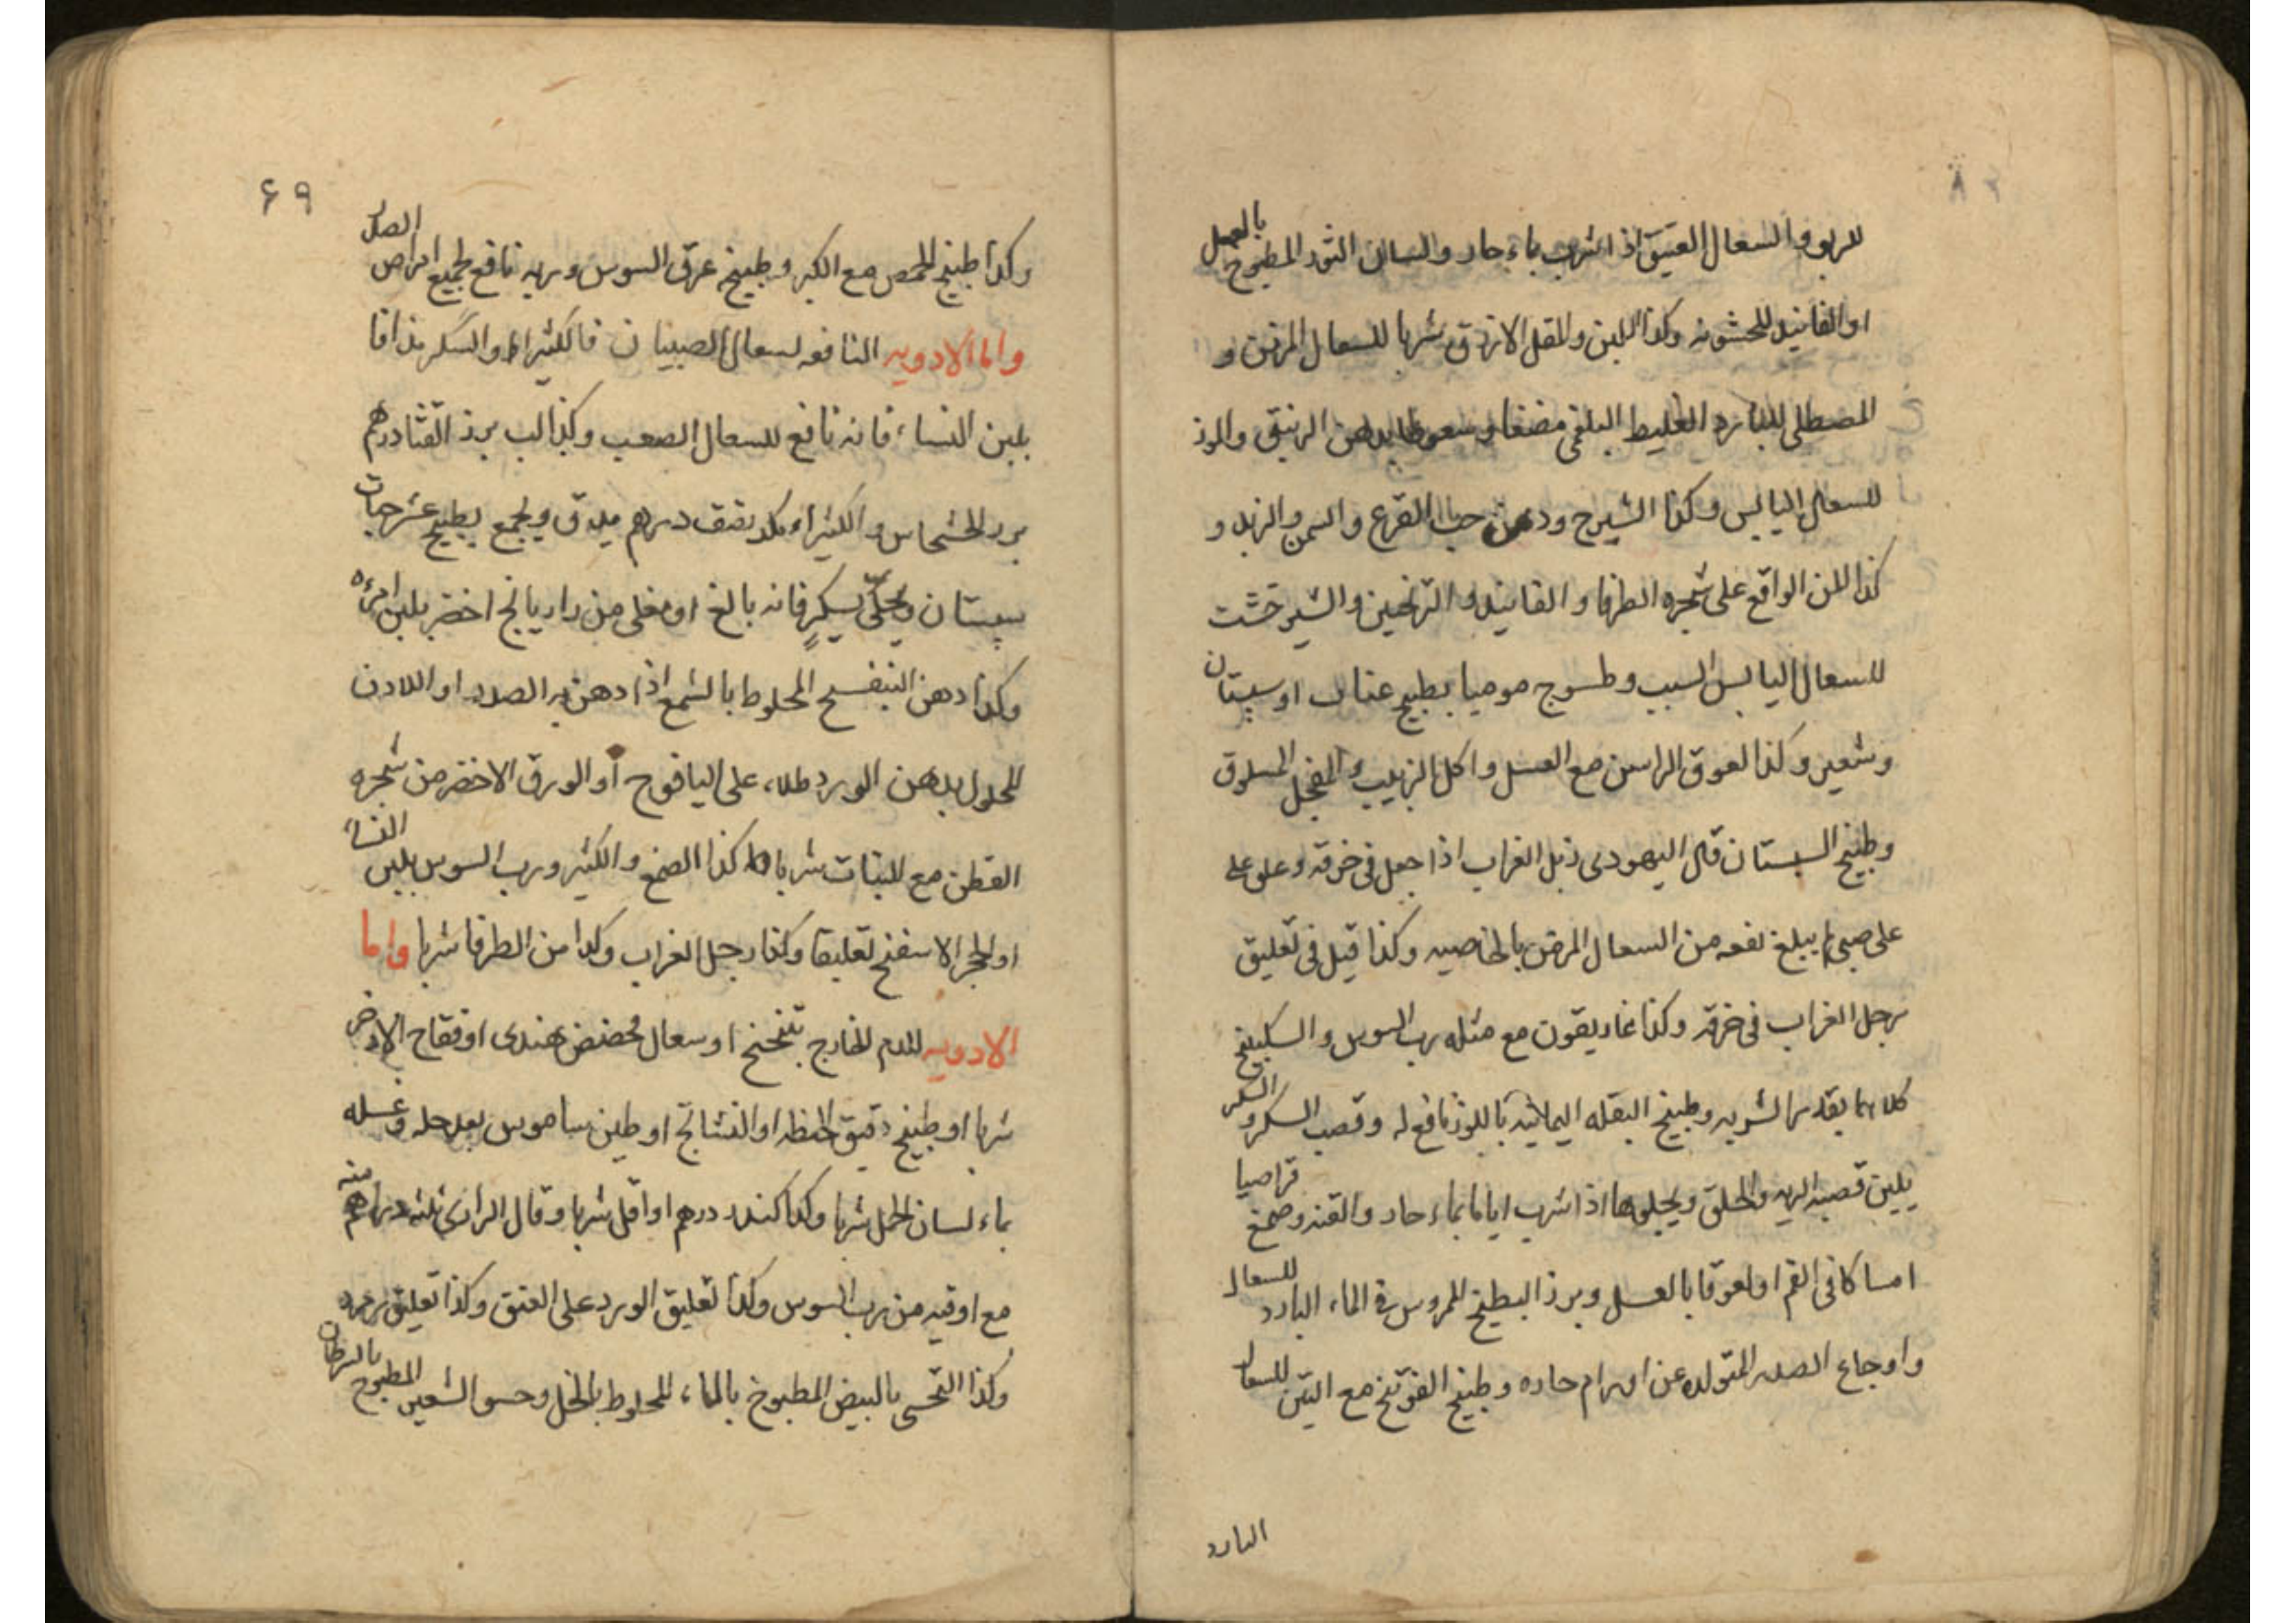 للربو والسعال العتيق اذا شرب بماء حار ولسان الثور المطبوخ بالعسل
او الفانيد للخشونه وكذا اللبن والمقل الازرق شربا للسعال المزمن و
المصطلى للبارد الغليط البلغمى مضغا وسعوطا بدهن الزنبق والوز
للسعال اليابس وكذا الشيرج ودهن حب القرع والسمن والزبد و
كذا المن الواقع على شجره الطرفا والفانيد والترنجبين والشيرخشت
للسعال اليابس السبب وطسوج موميا بطبيخ عناب او سپستان
وشعير وكذا لعوق الراسن مع العسل واكل الزبيب والفجل المسلوق
وطبيخ السبستان قال اليهودى زبل الغراب اذا جعل فى خرقه وعلق على
على صبى لم يبلغ نفعه من السعال المزمن بالخاصيه وكذا قيل فى تعليق
رجل الغراب فى خرقه وكذا غاريقون مع مثله رب السوس والسكبينج
كلاهما بقدر الشربه وطبيخ البقله اليمانيه باللوز نافع له وقصب السكر والسكر
يلين قصبه الريه والحلق ويجلوها اذا شرب اياما بماء حار والقند وصمغ قراصيا
امساكا فى الفم او لعوقا بالعسل وبرز البطيخ الممروس فى الماء البارد للسعال
واوجاع الصدر المتولده عن اورام حاده وطبيخ الفوتنج مع التين للسعال
البارد
۶۹
وكذا طبيخ الحمص مع الكبر وطبيخ عرق السوس وربه نافع لجميع امراض الصدر
واما الادويه النافعه لسعال الصبيان فالكثيراء والسكر مذافا
بلبن النساء فانه نافع للسعال الصعب وكذا لب برز القثا درهم
برز الخشخاش والكثيراء بكد نصف درهم يدق ويجمع بطبيخ عشر حبات
سپستان ويحلى بسكر فانه بالغ او مغلى من رازيانج اخضر بلبن امرءه
وكذا دهن البنفسج المخلوط بالشمع اذا دهن به الصدر او اللادن
المحلول بدهن الورد طلاء على اليافوخ او الورق الاخضر من شجره
القطن مع النبات شربا وكذا الصمغ والكثير ورب السوس بلبن النساء
او الحجر الاسفنج تعليقا وكذا رجل الغراب وكذا من الطرفا شربا واما
الادويه للدم الخارج بتنخنخ او سعال فحضض هندى او فقاح الاذخر
شربا او طبيخ دقيق الحنطه او النشاتج او طين ساموس بعد حله وغسله
بماء لسان الحمل شربا وكذا كندر درهم او اقل شربا وقال الرازى ثلثه دراهم منه
مع اوقيه من رب السوس وكذا تعليق الورد على العنق وكذا تعليق زمرد
وكذا التحسى بالبيض المطبوخ بالماء المخلوط بالخل وحسو الشعير المطبوخ بالسرطان